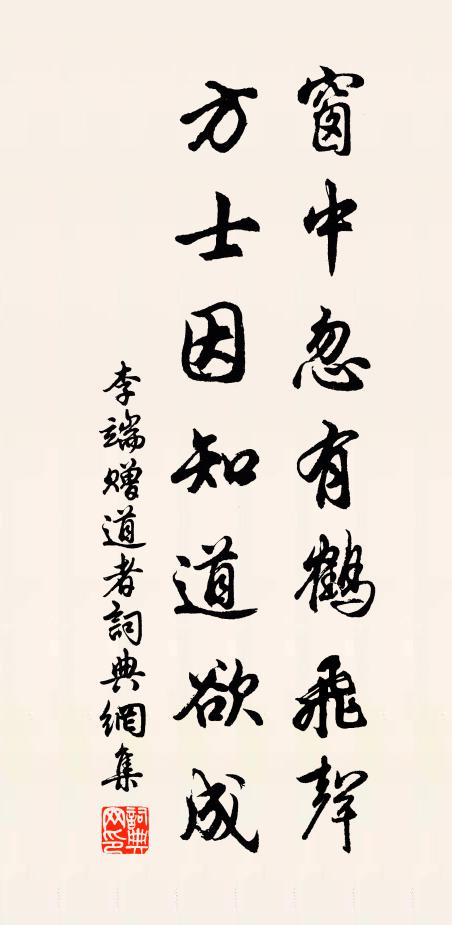 窗中忽有鶴飛聲
方士因知道欲成
李端贈道者詞典網集
詞典網印